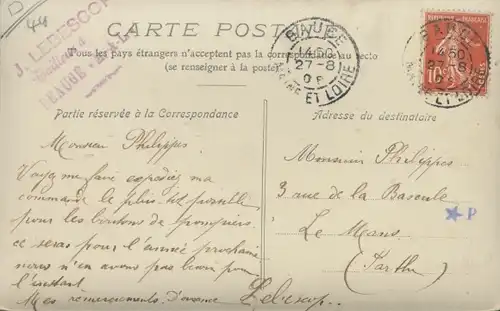 D
44
CARTE POSTALE
J. LEBESCOP
BEAUGÉ
Tous les pays étrangers n'acceptent pas la correspondance au recto
(se renseigner à la poste)
BAUGÉ
14 50
27-8
MAINE ET LOIRE
10
Partie réservée à la Correspondance
Adresse du destinataire
Monsieur Philippes
Voyez me faire expediez ma
commande le plus tot possible
pour les boutons de pompiers
ce seras pour l'année prochaine
nous n'en avons pas besoin pour
l'instant
Mes remerciements D'avance Lebescop
Monsieur Philippes
3 rue de la Bascule
Le Mans
(Sarthe)
P